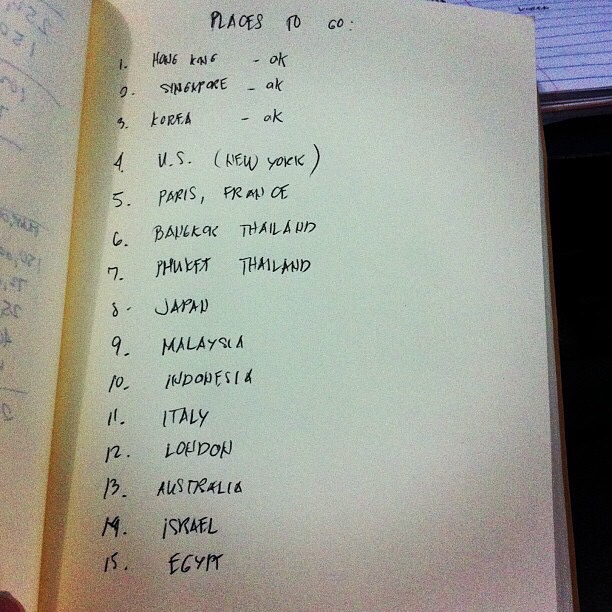 PLACES TO GO:
1. HONG KONG - ok
2. SINGAPORE - ok
3. KOREA - ok
4. U.S. (NEW YORK)
5. PARIS, FRANCE
6. BANGKOK THAILAND
7. PHUKET THAILAND
8- JAPAN
9. MALAYSIA
10. INDONESIA
11. ITALY
12. LONDON
13. AUSTRALIA
14. ISRAEL
15. EGYPT